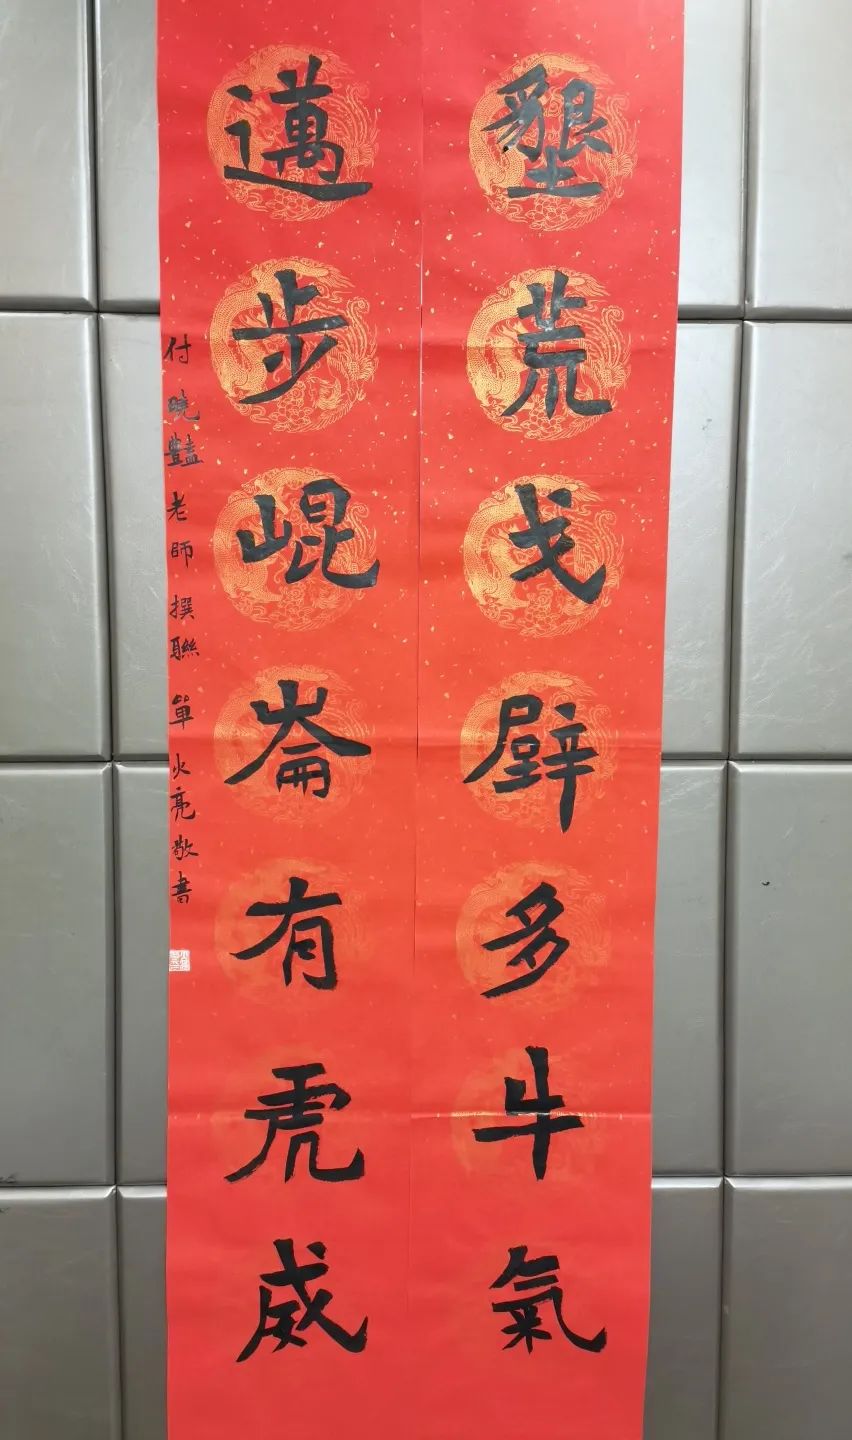 墾荒戈壁多牛氣
邁步崐崙有虎威
付曉豔老師撰聯 單火亮敬書